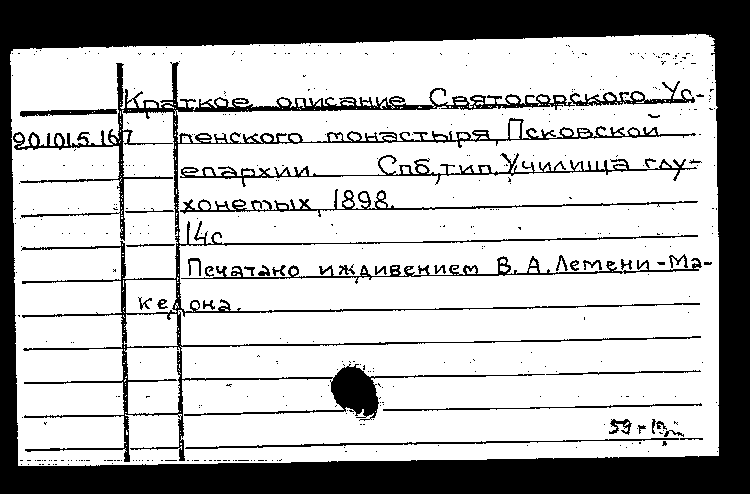 Краткое описание Святогорского Ус-
20.101.5.167 пенского монастыря, Псковской
епархии. Спб, тип. Училища глу-
хонемых, 1898.
14с
Печатано иждивением В. А. Лемени-Ма-
кедона.